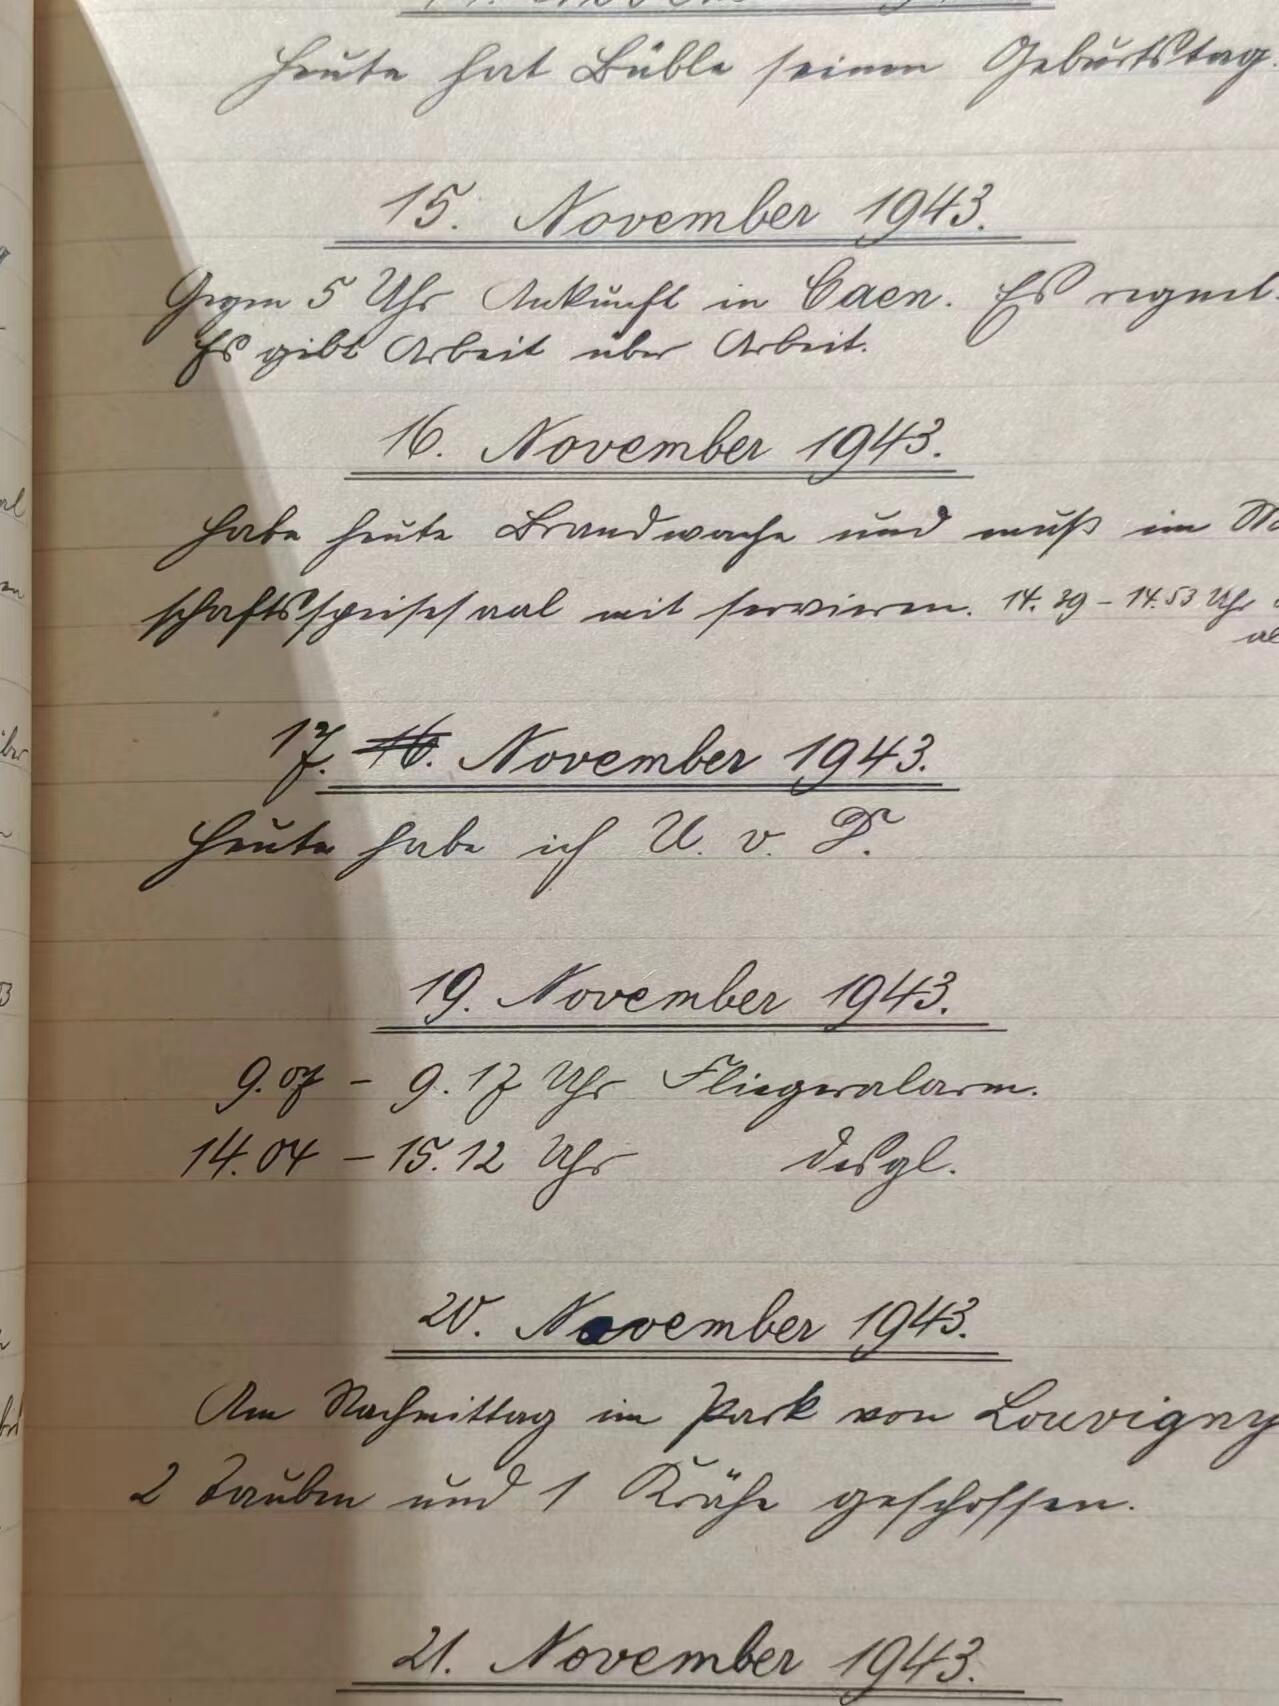 Heute hat Büble seinen Geburtstag.
15. November 1943.
Gegen 5 Uhr Ankunft in Caen. Es regnet.
Es gibt Arbeit über Arbeit.
16. November 1943.
Habe heute Brandwache und muß im
schaftsspeisesaal mit servieren. 14.39 - 14.53 Uhr
17. 16. November 1943.
Heute habe ich U. v. D.
19. November 1943.
9.07 - 9.17 Uhr Fliegeralarm.
14.04 - 15.12 Uhr desgl.
20. November 1943.
Am Nachmittag im Park von Louvigny
2 Tauben und 1 Krähe geschossen.
21. November 1943.